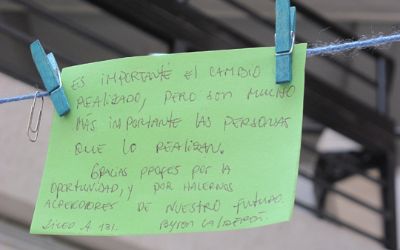 ES IMPORTANTE EL CAMBIO
REALIZADO, PERO SON MUCHO
MÁS IMPORTANTE LAS PERSONAS
QUE LO REALIZAN.
GRACIAS PROFES POR LA
OPORTUNIDAD, Y POR HACERNOS
ACREEDORES DE NUESTRO FUTURO.
LICEO A. 131.